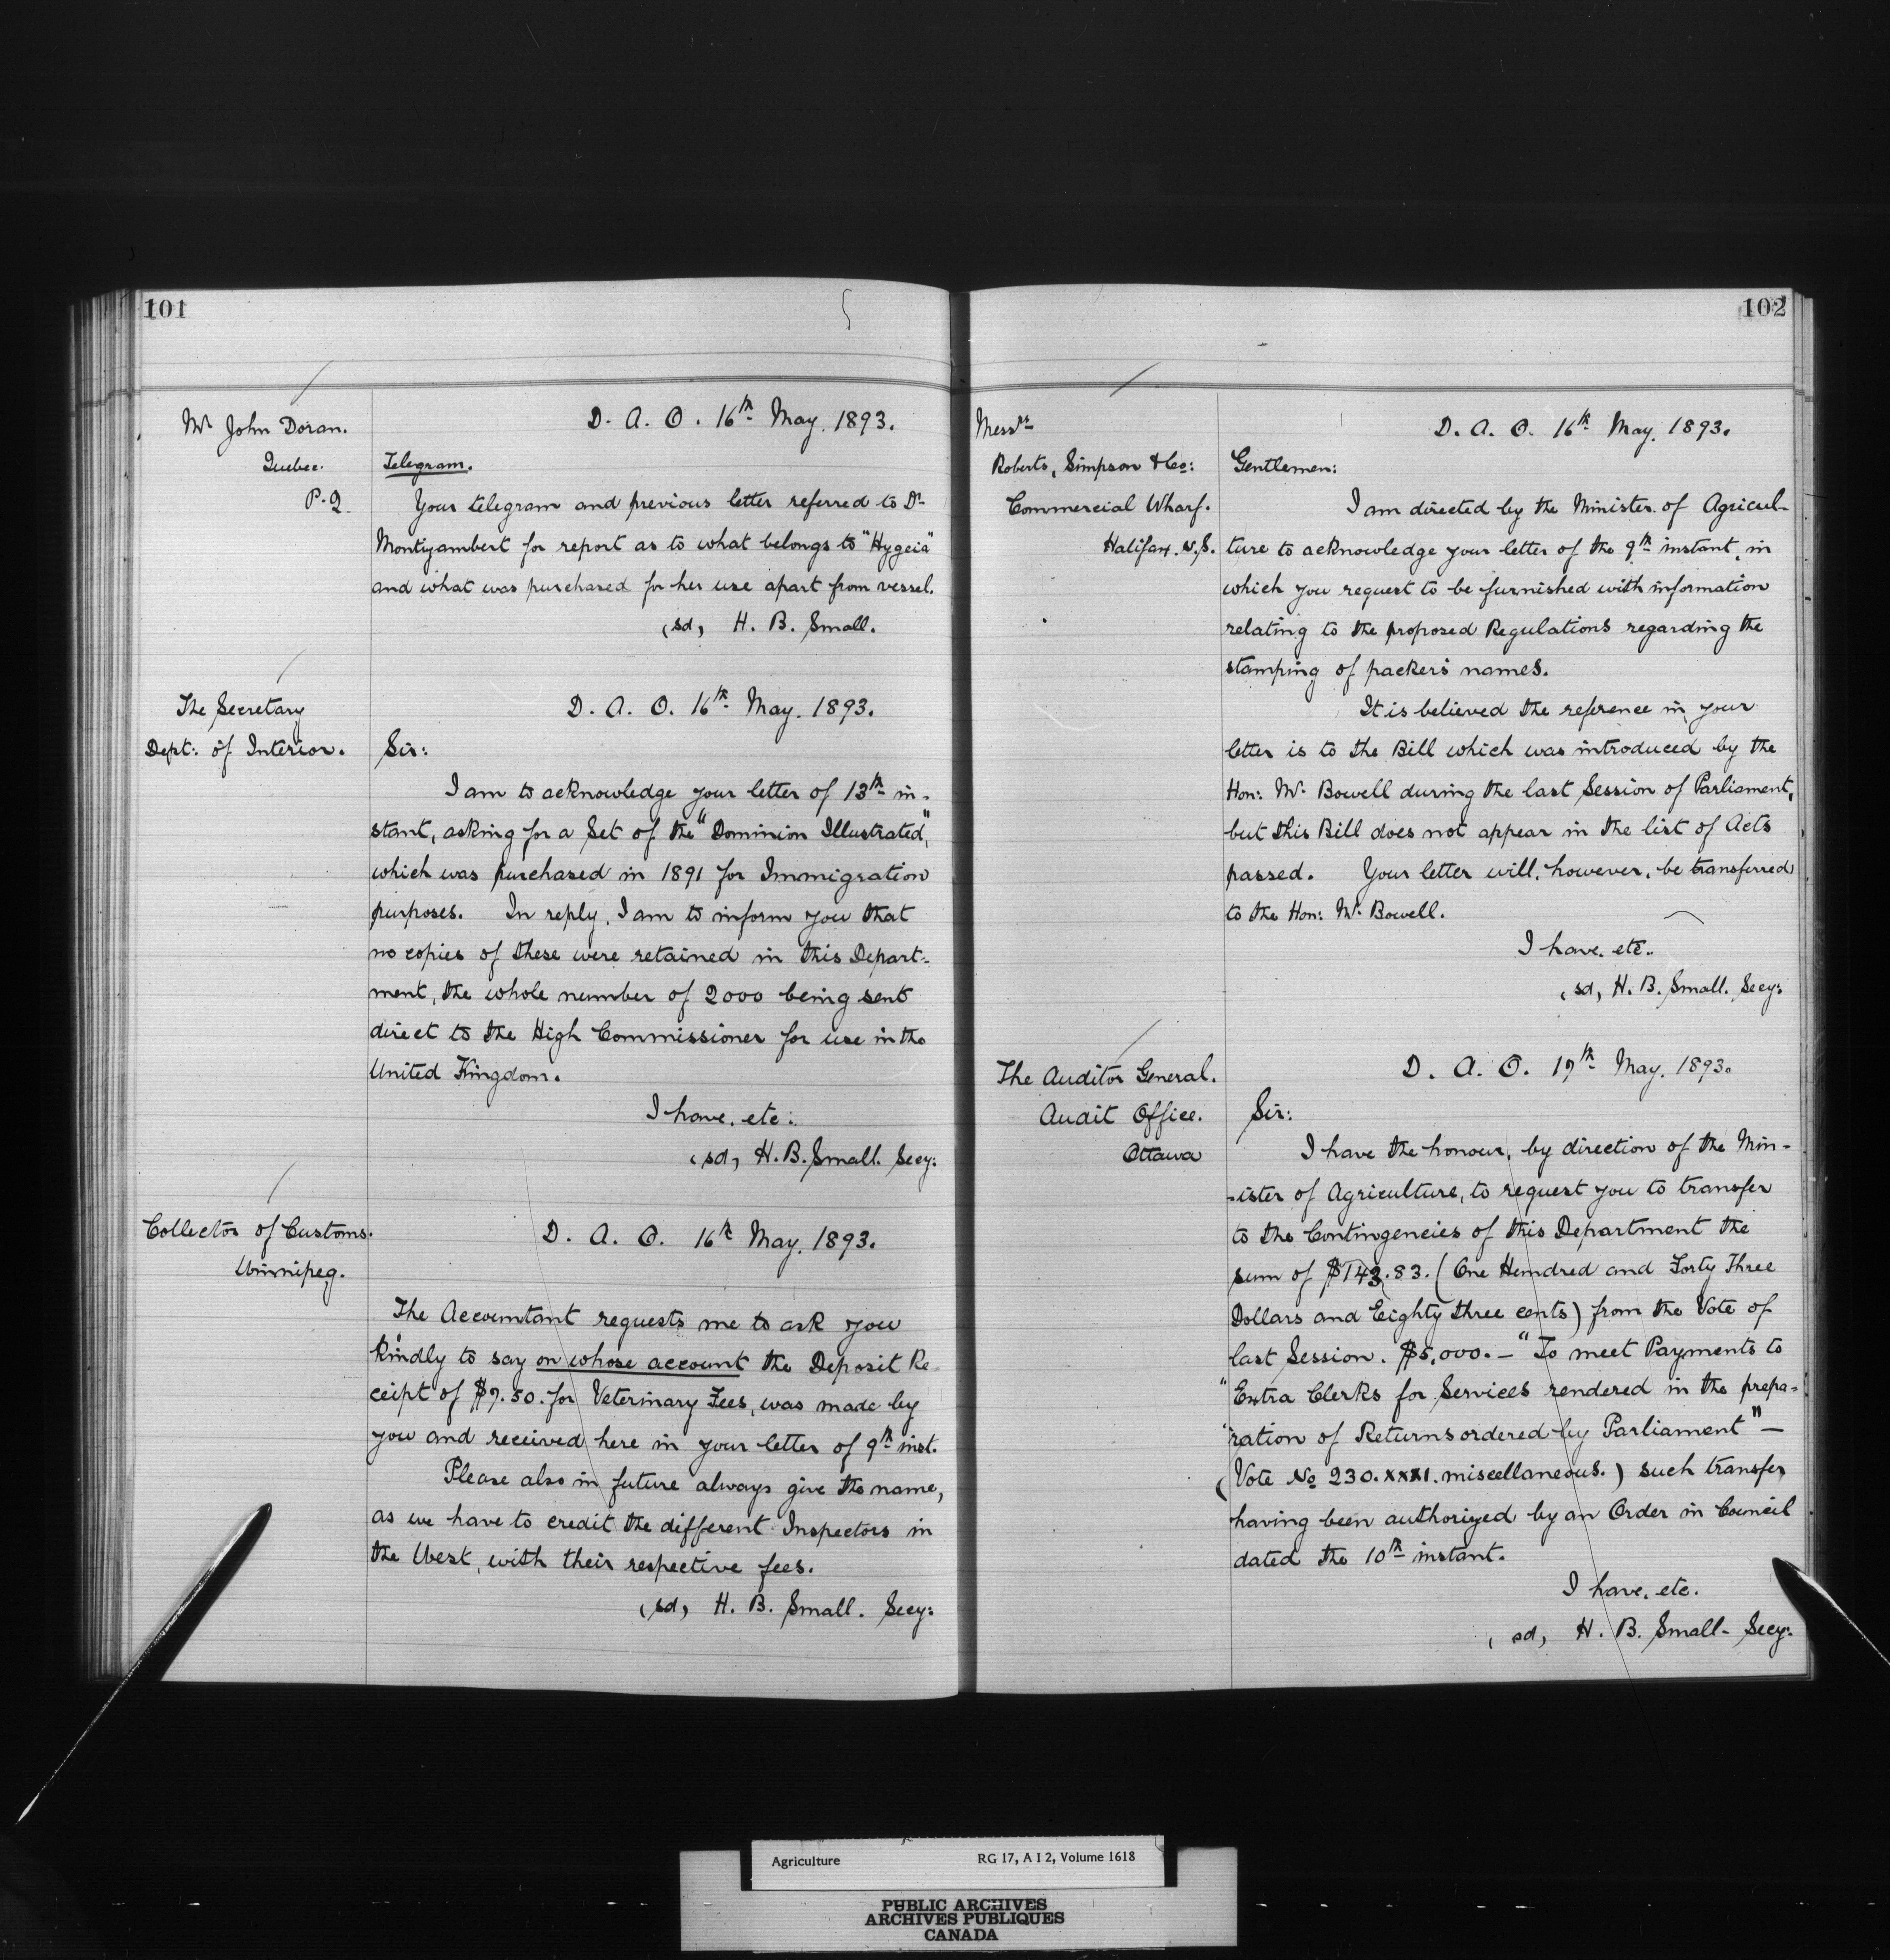 101
Mr. John Doran.
Quebec.
P.Q.
D. A. O. 16th May. 1893.
Telegram.
Your telegram and previous letter referred to Dr.
Montizambert for report as to what belongs to "Hygeia"
and what was purchased for her use apart from vessel.
(sd) H. B. Small.
The Secretary
Dept: of Interior.
D. A. O. 16th May. 1893.
Sir:
I am to acknowledge your letter of 13th in-
stant, asking for a Set of the "Dominion Illustrated,"
which was purchased in 1891 for Immigration
purposes. In reply, I am to inform you that
no copies of these were retained in this Depart-
ment, the whole number of 2000 being sent
direct to the High Commissioner for use in the
United Kingdom.
I have. etc:
(sd) H. B. Small. Secy:
Collector of Customs.
Winnipeg.
D. A. O. 16th May. 1893.
The Accountant requests me to ask you
kindly to say on whose account the Deposit Re-
ceipt of $7.50. for Veterinary Fees, was made by
you and received here in your letter of 9th inst.
Please also in future always give the name,
as we have to credit the different Inspectors in
the West, with their respective fees.
(sd) H. B. Small. Secy:
102
Messrs
Roberts, Simpson & Co:
Commercial Wharf.
Halifax. N.S.
D. A. O. 16th May. 1893.
Gentlemen:
I am directed by the Minister of Agricul-
ture to acknowledge your letter of the 9th instant, in
which you request to be furnished with information
relating to the proposed Regulations regarding the
stamping of packers names.
It is believed the reference in your
letter is to the Bill which was introduced by the
Hon: Mr. Bowell during the last Session of Parliament,
but this Bill does not appear in the list of Acts
passed. Your letter will, however, be transferred
to the Hon: Mr. Bowell.
I have. etc.
(sd) H. B. Small. Secy:
The Auditor General.
Audit Office.
Ottawa
D. A. O. 17th May. 1893.
Sir:
I have the honour, by direction of the Min-
-ister of Agriculture, to request you to transfer
to the Contingencies of this Department the
sum of $143.83. (One Hundred and Forty Three
Dollars and Eighty three cents) from the Vote of
last Session. $5,000. — "To meet Payments to
"Extra Clerks for Services rendered in the prepa-
"ration of Returns ordered by Parliament" —
(Vote No 230. XXXI. miscellaneous.) such transfer
having been authorized by an Order in Council
dated the 10th instant.
I have. etc.
(sd) H. B. Small - Secy:
Agriculture RG 17, A I 2, Volume 1618
PUBLIC ARCHIVES
ARCHIVES PUBLIQUES
CANADA